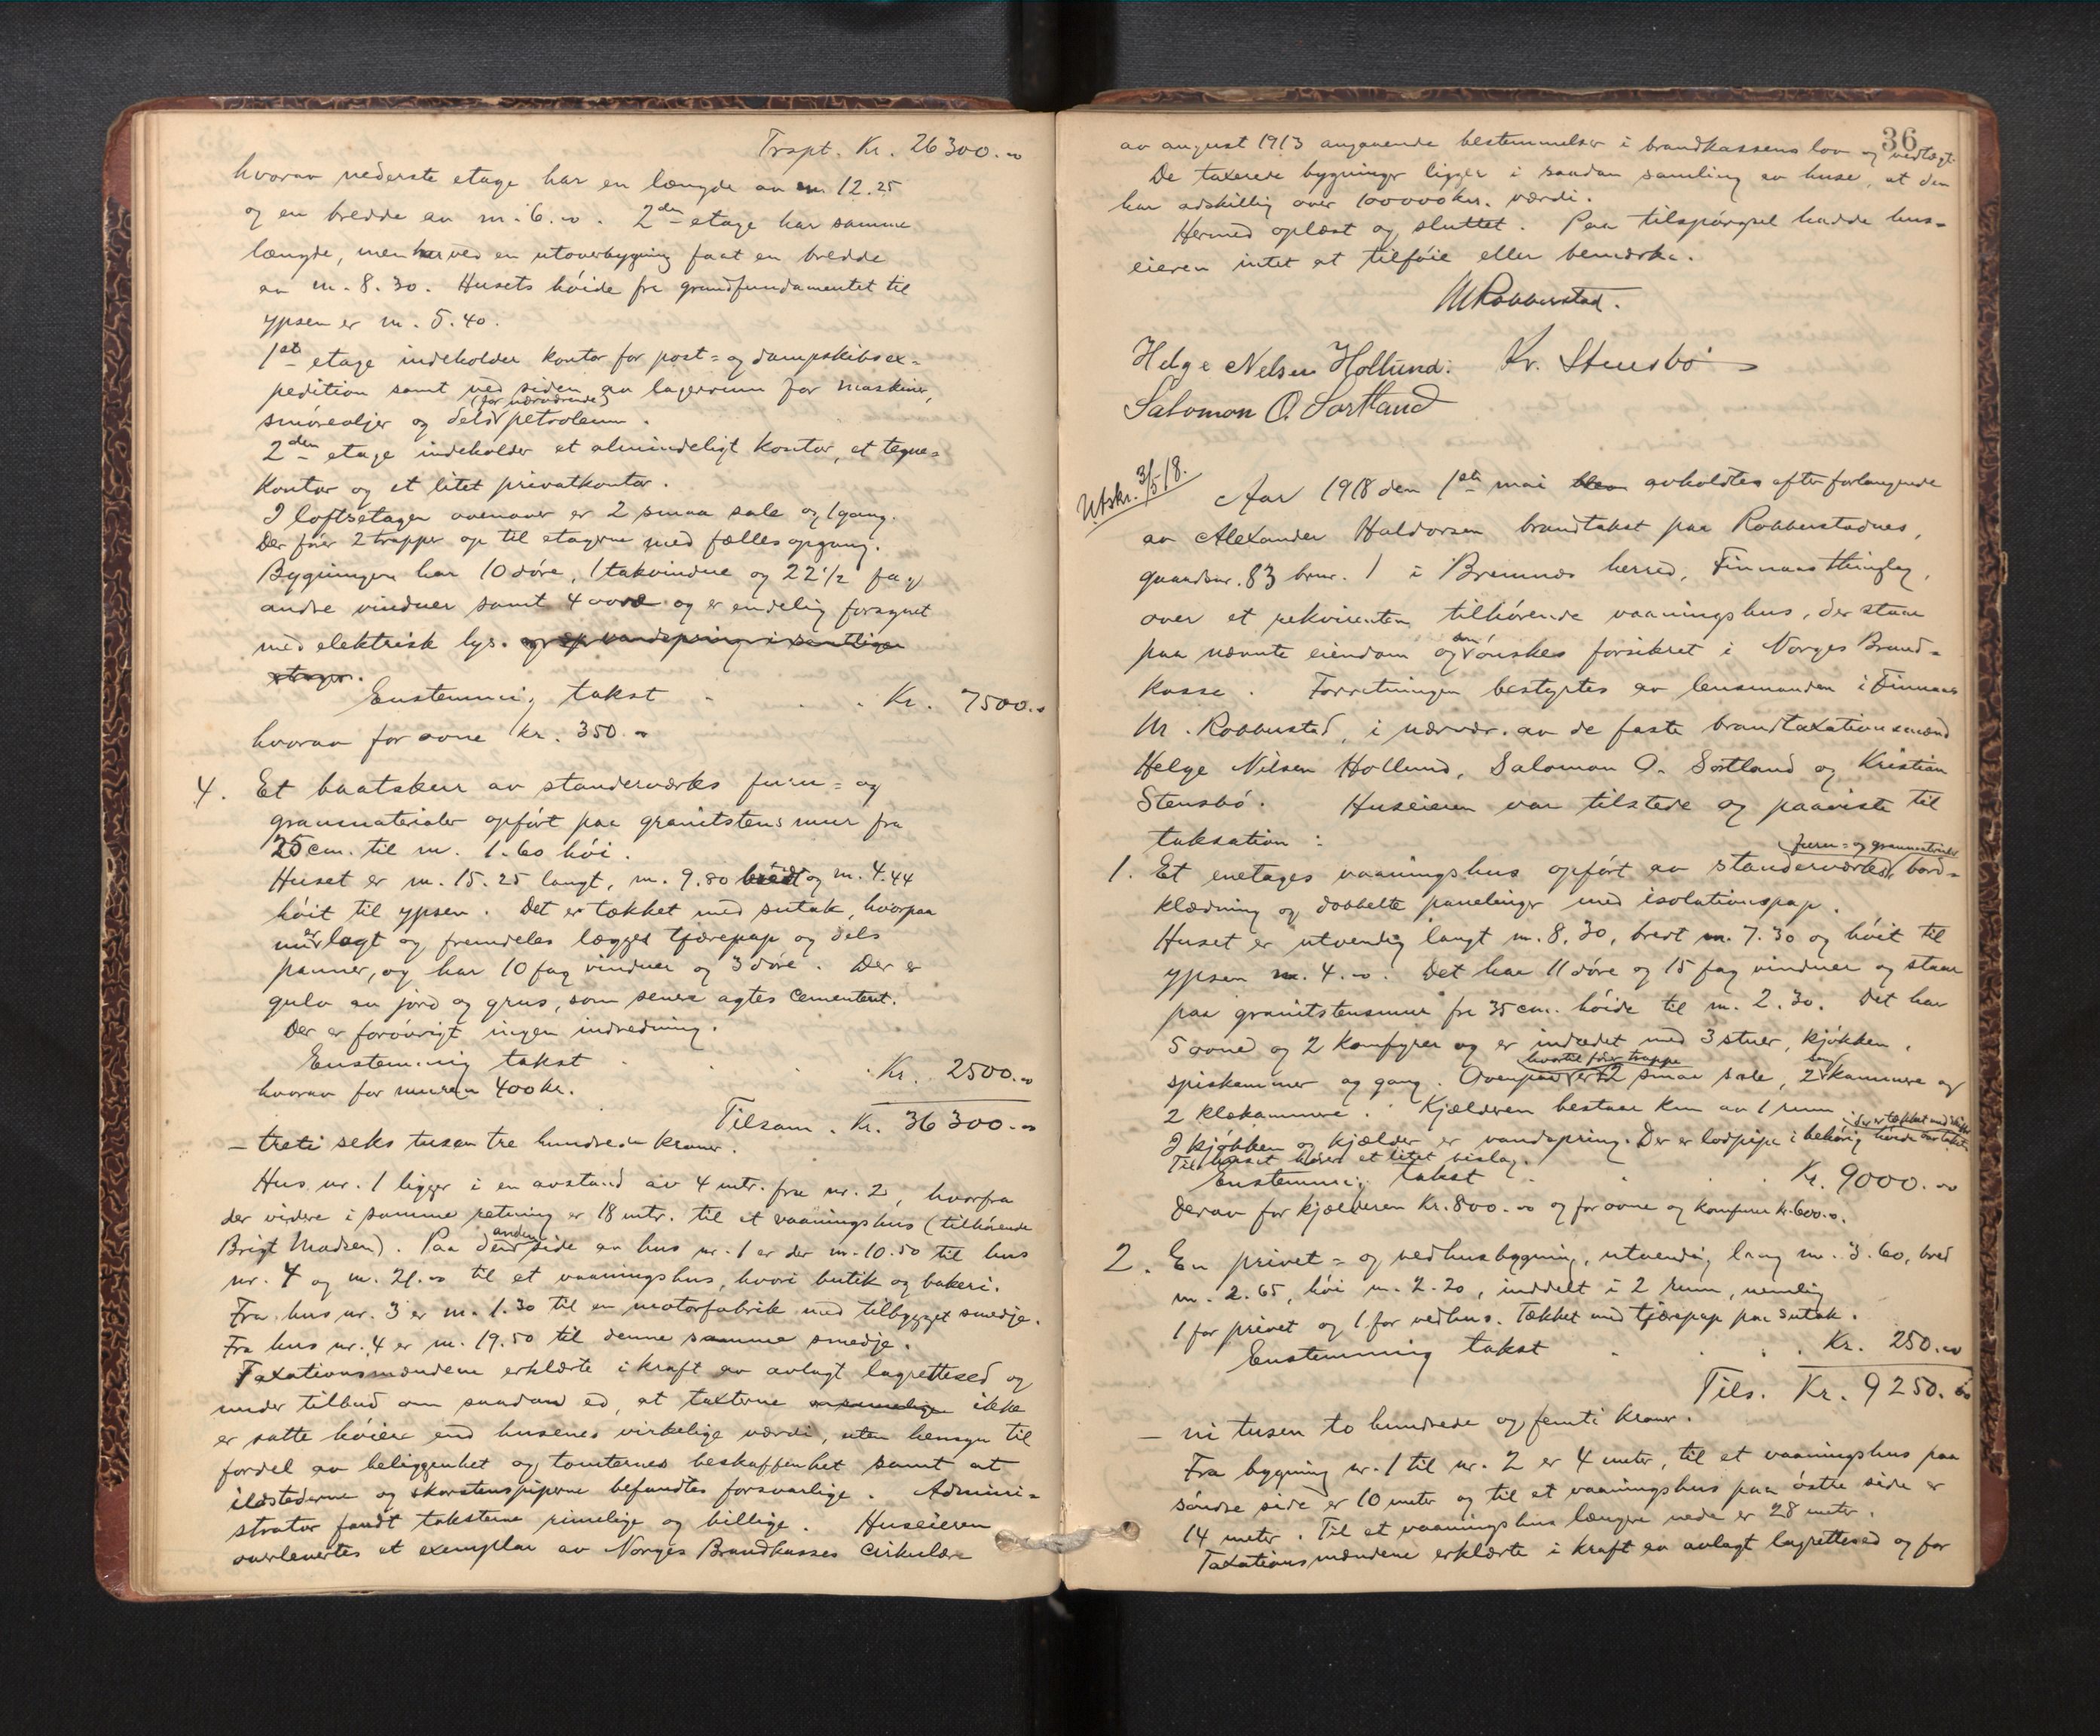 Trspt. Kr. 26300.00
hvorav nederste etage har en længde av m. 12.25
og en bredde av m. 6.00. 2den etage har samme
længde, men har ved en utoverbygning faat en bredde
av m. 8.30. Husets høide fra grundfundamentet til
ypsen er m. 5.40.
1ste etage indeholder kontor for post- og dampskibsex-
pedition samt ved siden av lagerrum for maskiner,
(for nærværende)
smøreoljer og dels petroleum.
2den etage indeholder et almindeligt kontor, et tegne-
kontor og et litet privatkontor.
I loftsetagen ovenover er 2 smaa sale og 1 gang.
Der fører 2 trapper op til etagerne med fælles opgang.
Bygningen har 10 døre, 1 takvindue og 22 1/2 fag
andre vinduer samt 4 ovne og er endelig forsynet
med elektrisk lys. og er vandspring i samtlige
etager.
Enstemmig takst . . . Kr. 7500.00
hvorav for ovne kr. 350.00
4. Et baatskur av standerværks furu- og
granmaterialer opført paa granitstens mur fra
25 cm. til m. 1.60 høi.
Huset er m. 15.25 langt, m. 9.80 bredt og m. 4.44
høit til ypsen. Det er tækket med sutak, hvorpaa
er
lagt og fremdeles lægges tjærepap og dels
panner, og har 10 fag vinduer og 3 døre. Der er
gulv av jord og grus, som senere agtes cementert.
Der er forøvrigt ingen indredning.
Enstemmig takst . . . Kr. 2500.00
hvorav for muren 400 kr.
Tilsam. Kr. 36300.00
– treti seks tusen tre hundrede kroner.
Hus nr. 1 ligger i en avstand av 4 mtr. fra nr. 2, hvorfra
der videre i samme retning er 18 mtr. til et vaaningshus (tilhørende
Brigt Madsen). Paa den anden side av hus nr. 1 er der m. 10.50 til hus
nr. 4 og m. 21.00 til et vaaningshus, hvori butik og bakeri.
Fra hus nr. 3 er m. 1.30 til en motorfabrik med tilbygget smedje.
Fra hus nr. 4 er m. 19.50 til denne samme smedje.
Taxationsmændene erklærte i kraft av avlagt lagretteed og
under tilbud om saadan ed, at taxterne ikke
er satte høiere end husenes virkelige værdi, uten hensyn til
fordel av beliggenhet og tomternes beskaffenhet samt at
ildstederne og skorstenspiperne befandtes forsvarlige. Admini-
strator fandt taksterne rimelige og billige. Huseieren
overlevertes et exemplar av Norges Brandkasses cirkulære
36
av august 1913 angaaende bestemmelser i brandkassens lov og vedtægt.
De taxerede bygninger ligger i saadan samling av huse, at den
har adskillig over 100000 kr. værdi.
Hermed oplæst og sluttet. Paa tilspørgsel hadde hus-
eieren intet at tilføie eller bemærke.
M Robberstad.
Helge Nelsen Hollund. Kr. Stensbø
Salomon O. Sortland
Utskr. 3/5 18.
Aar 1918 den 1ste mai blev avholdtes efter forlangende
av Alexander Haldorsen brandtakst paa Robberstadnes,
gaardsnr. 83 brnr. 1 i Bremnes herred, Finnaas thinglag,
over et rekvirenten tilhørende vaaningshus, der staar
paa nævnte eiendom og som ønskes forsikret i Norges Brand-
kasse. Forretningen bestyrtes av lensmanden i Finnaas
M. Robberstad, i nærvær. av de faste brandtaxationsmænd
Helge Nilsen Hollund, Salomon O. Sortland og Kristian
Stensbø. Huseieren var tilstede og paaviste til
taksation:
furu- og granmaterialer
1. Et enetages vaaningshus opført av standerværks, bord-
klædning og dobbelte panelinger med isolationspap.
Huset er utvendig langt m. 8.30, bredt m. 7.30 og høit til
ypsen m. 4.00. Det har 11 døre og 15 fag vinduer og staar
paa granitstensmur fra 35 cm. høide til m. 2.30. Det har
5 ovne og 2 komfyrer og er indredet med 3 stuer, kjøkken,
hvortil fører trappe
spiskammer og gang. Ovenpaa er 2 smaa sale, 2 kammere og
2 klekammere. Kjælderen bestaar kun av 1 rum
; der er tækket med skifer
I kjøkken og kjælder er vandspring. Der er lodpipe i behørig høide over taket.
Til huset hører et litet bislag.
Enstemmig takst . . . Kr. 9000.00
Derav for kjælderen Kr. 800.00 og for ovne og komfurer kr. 600.00.
2. En privet- og vedhusbygning, utvendig lang m. 3.60, bred
m. 2.65, høi m. 2.20, inddelt i 2 rum, nemlig
1 for privet og 1 for vedhus. Tækket med tjærepap paa sutak.
Enstemmig takst . . . Kr. 250.00
Tils. Kr. 9250.00
– ni tusen to hundrede og femti kroner.
Fra bygning nr. 1 til nr. 2 er 4 meter, til et vaaningshus paa
søndre side er 10 meter og til et vaaningshus paa østre side er
14 meter. Til et vaaningshus længere nede er 28 meter.
Taxationsmændene erklærte i kraft av avlagt lagretteed og for